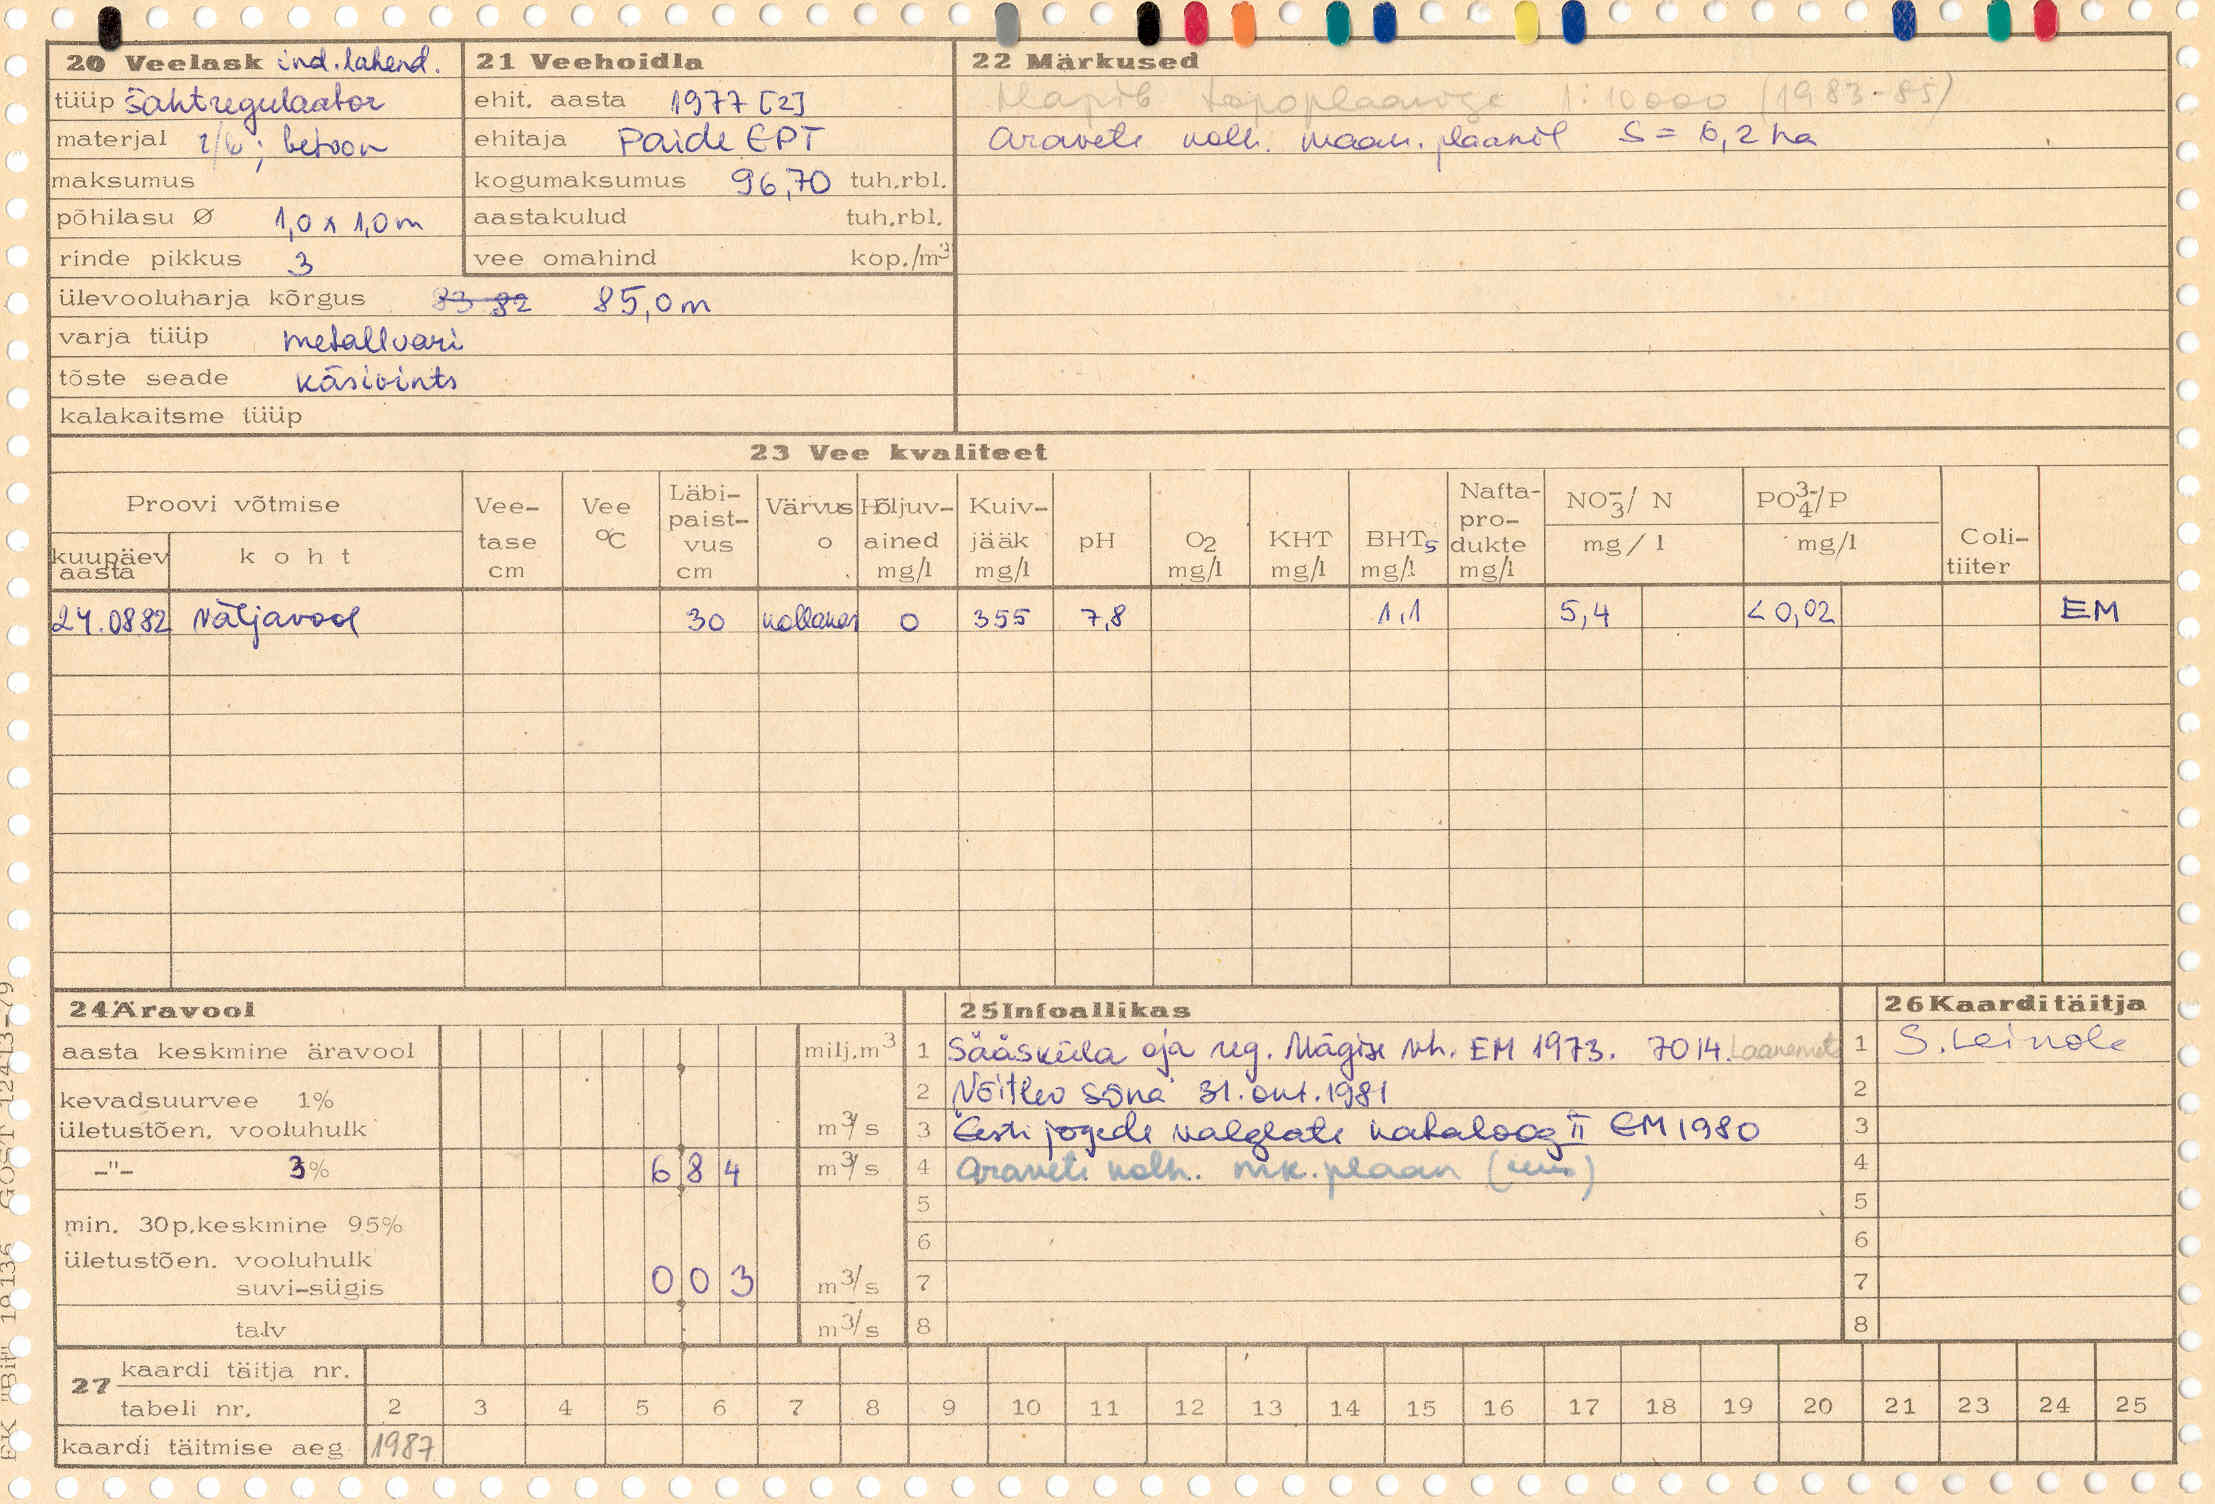 20 Veelask ind. lahend.
tüüp šahtregulaator
materjal r/b; betoon
maksumus
põhilasu Ø 1,0 x 1,0 m
rinde pikkus 3
ülevooluharja kõrgus 83 82 85,0 m
varja tüüp metallvari
tõste seade käsivints
kalakaitsme tüüp
21 Veehoidla
ehit. aasta 1977 [2]
ehitaja Paide EPT
kogumaksumus 96,70 tuh.rbl.
aastakulud tuh.rbl.
vee omahind kop./m³
22 Märkused
topoplaaniga 1:10000 (1983-85)
Aravete kolh. maak. plaanil S = 6,2 ha
23 Vee kvaliteet
Proovi võtmise
kuupäev aasta
koht
Vee-tase cm
Vee °C
Läbi-paist-vus cm
Värvus o
Hõljuv-ained mg/l
Kuiv-jääk mg/l
pH
O2 mg/l
KHT mg/l
BHT5 mg/l
Nafta-pro-dukte mg/l
NO3⁻/ N mg/l
PO4³⁻/P mg/l
Coli-tiiter
24.0882 Väljavool 30 kollakas 0 355 7,8 1,1 5,4 <0,02 EM
24 Äravool
aasta keskmine äravool milj.m³
kevadsuurvee 1%
ületustõen. vooluhulk m³/s
-"- 3% 6 8 4 m³/s
min. 30p.keskmine 95%
ületustõen. vooluhulk
suvi-sügis 0 0 3 m³/s
talv m³/s
25 Infoallikas
1 Sääsküla oja reg. Mägise vh. EM 1973. 7014. Laanemets
2 Võitlev Sõna 31. okt. 1981
3 Eesti jõgede valglate kataloog II EM 1980
4 Aravete kolh. mk. plaan
5
6
7
8
26 Kaarditäitja
1 S. Leinola
2
3
4
5
6
7
8
27 kaardi täitja nr.
tabeli nr. 2 3 4 5 6 7 8 9 10 11 12 13 14 15 16 17 18 19 20 21 23 24 25
kaardi täitmise aeg 1987
EK "Bit" 19136 GOST 12413-79